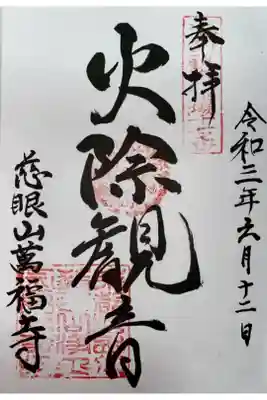 奉拝
令和二年六月十二日
火除観音
慈眼山萬福寺